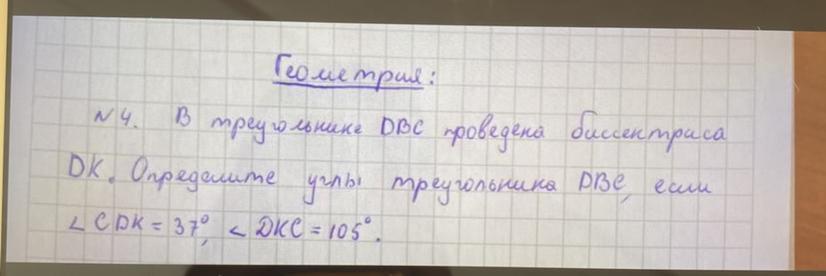 Геометрия:
N4. В треугольнике DBC проведена биссектриса
DK. Определите углы треугольника DBC, если
∠CDK = 37°, ∠DKC = 105°.